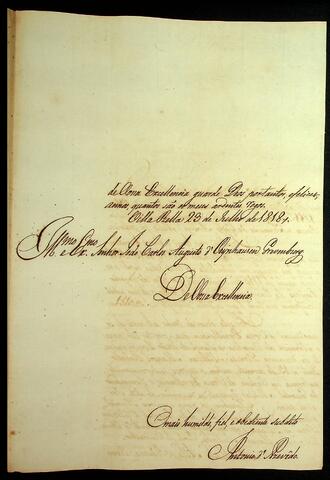 de Vossa Excellencia guarde Deos por tantos, e felices
annos, quantos são os meus ardentes rogos.
Villa Bella 23 de Julho de 1818,,
Senhor João Carlos Augusto d'Oeynhausen Grevenburg
De Vossa Excellencia
O mais humilde, fiel, e obediente subdito
Antonio d'Azevêdo